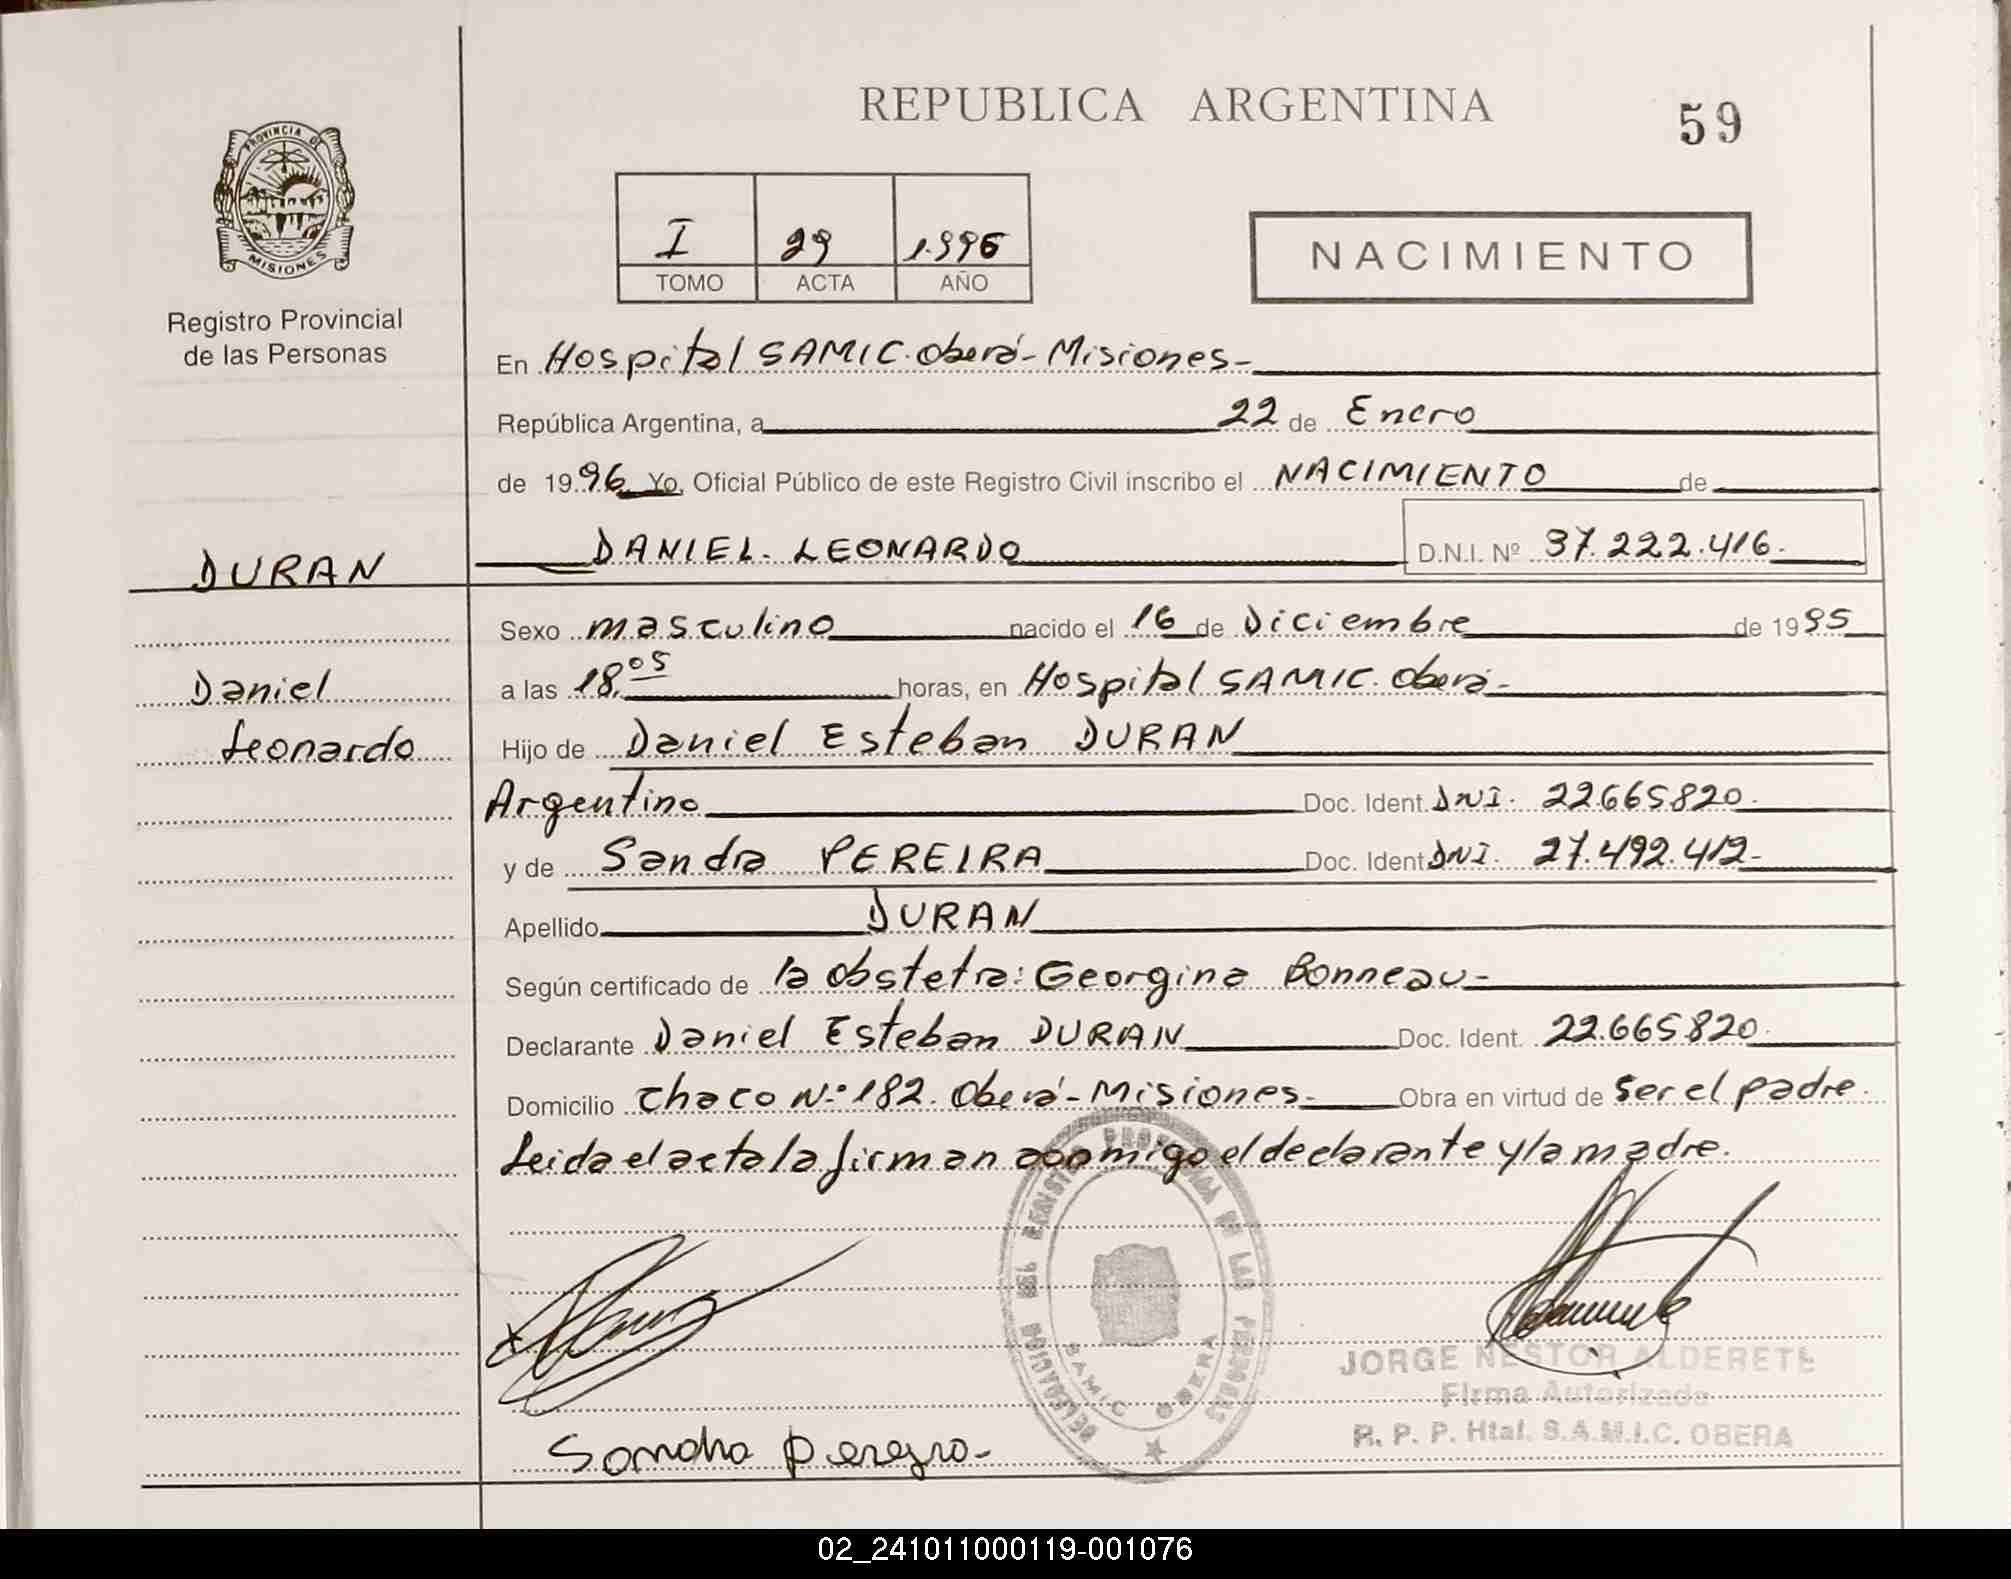 REPUBLICA ARGENTINA
59
PROVINCIA DE
MISIONES
Registro Provincial
de las Personas
I 29 1.996
TOMO ACTA AÑO
NACIMIENTO
En Hospital SAMIC. Oberá-Misiones-
República Argentina, a 22 de Enero
de 1996 Yo, Oficial Público de este Registro Civil inscribo el NACIMIENTO de
DURAN
DANIEL LEONARDO D.N.I. Nº 37.222.416.
Sexo masculino nacido el 16 de Diciembre de 1995
Daniel
a las 18.05 horas, en Hospital SAMIC. Oberá-
Leonardo
Hijo de Daniel Esteban DURAN
Argentino Doc. Ident. DNI. 22.665820.
y de Sandra PEREIRA Doc. Ident DNI. 27.492.412-
Apellido DURAN
Según certificado de la obstetra: Georgina Bonneau-
Declarante Daniel Esteban DURAN Doc. Ident. 22.665820.
Domicilio Chaco N.º 182. Oberá-Misiones- Obra en virtud de Ser el padre.
Leida el acta la firman conmigo el declarante y la madre.
DELEGACION DEL REGISTRO PROVINCIAL DE LAS PERSONAS
SAMIC OBERA
JORGE NESTOR ALDERETE
Firma Autorizada
R. P. P. Htal. S.A.M.I.C. OBERA
02_241011000119-001076